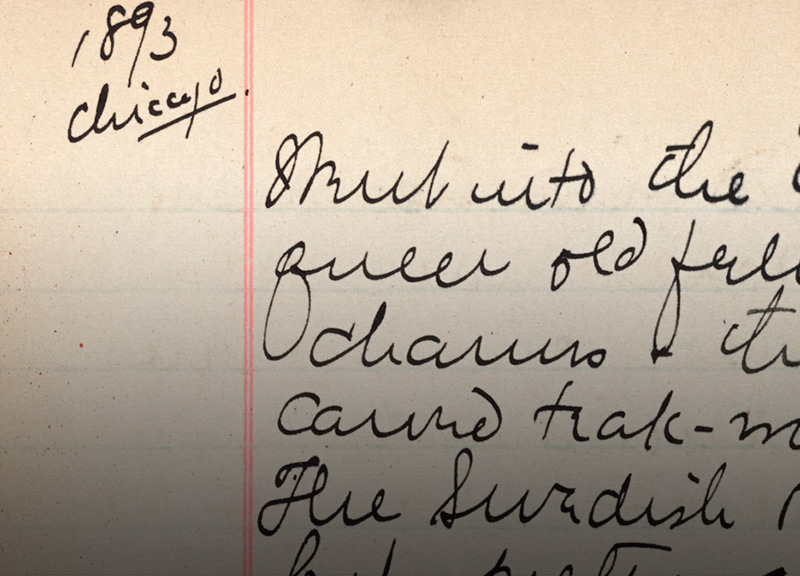 1893
Chicago.
Went into the
queer old
charms &
carved teak-
The Swedish
but